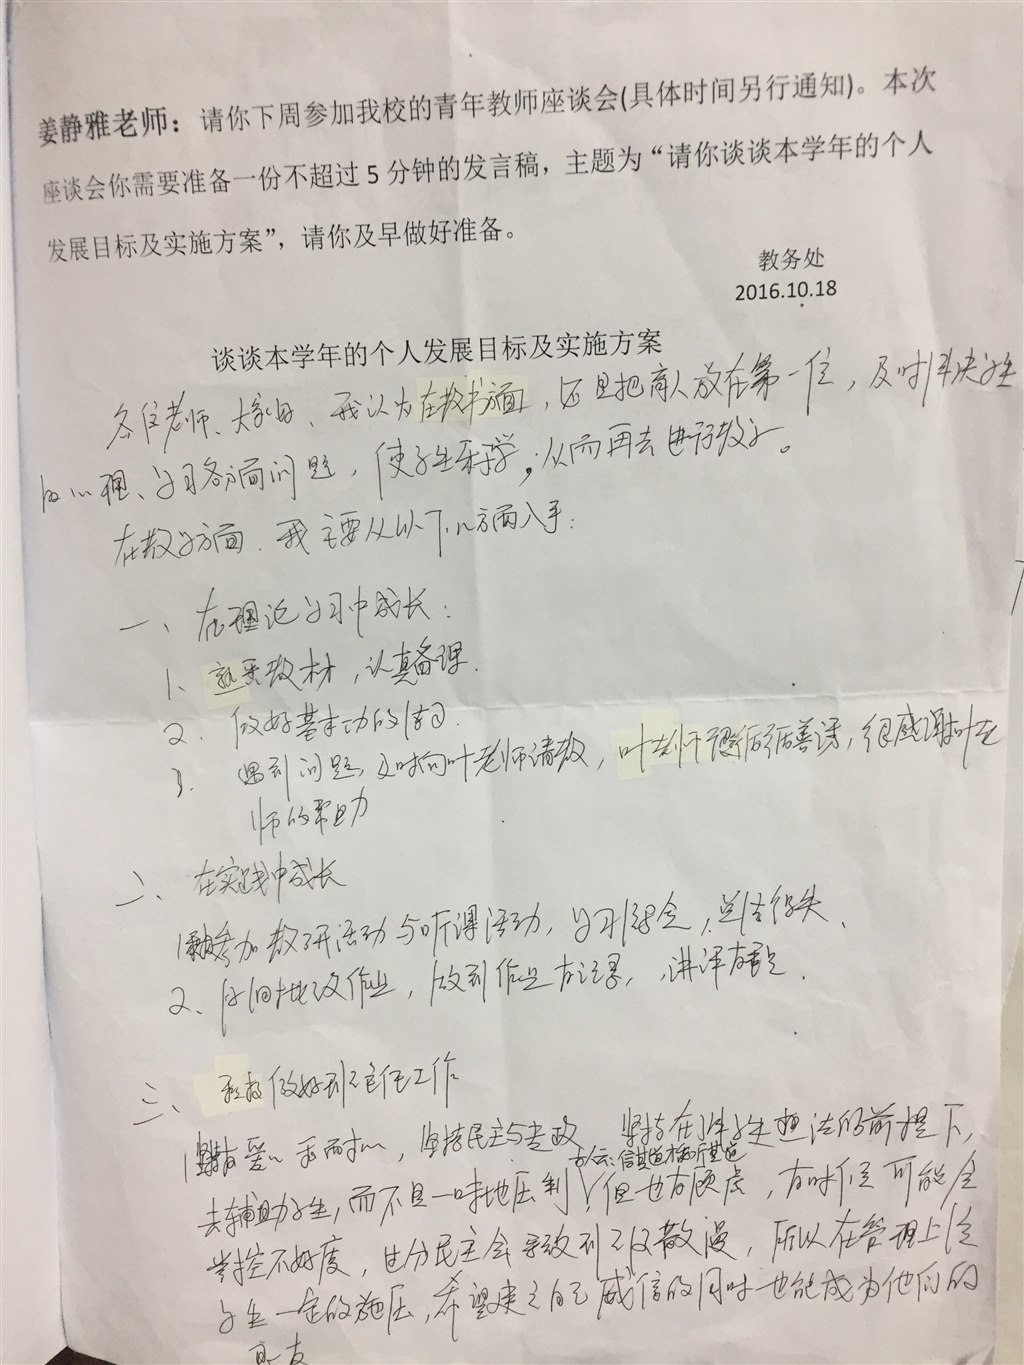 姜静雅老师：请你下周参加我校的青年教师座谈会(具体时间另行通知)。本次
座谈会你需要准备一份不超过5分钟的发言稿，主题为“请你谈谈本学年的个人
发展目标及实施方案”，请你及早做好准备。
教务处
2016.10.18
谈谈本学年的个人发展目标及实施方案
各位老师、大家好、我认为在教书方面，还是把育人放在第一位，及时解决学生
的心理、学习各方面问题，使学生乐学，从而再去进行教学。
在教学方面、我主要从以下几方面入手：
一、在理论学习中成长：
1、熟悉教材，认真备课.
2、做好基本功的练习.
3、遇到问题，及时向叶老师请教，叶老师循循善诱，很感谢叶老
师的帮助
二、在实践中成长
1、积极参加教研活动与听课活动，学习体会，总结得失.
2、及时批改作业，做到作业有记录，讲评有重点.
三、做好班主任工作
1、有爱心和耐心，坚持民主与专政，坚持在了解学生想法的前提下，
古人云：信其道
去辅助学生，而不是一味地压制∨但也有顾虑，有时候可能会
掌控不好度，过分民主会导致班级散漫，所以在管理上给
学生一定的施压，希望建立自己威信的同时也能成为他们的
朋友